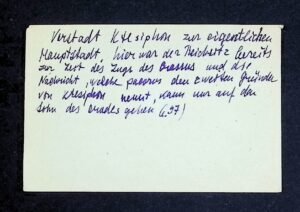 Vorstadt Ktesiphon zur eigentlichen
Hauptstadt, hier war der Reichssitz bereits
zur Zeit des Zugs des Crassus und die
Nachricht, welche pacorus den zweiten Gründer
von Ktesiphon nennt, kann nur auf den
Sohn des orodes gehen (s.37)!